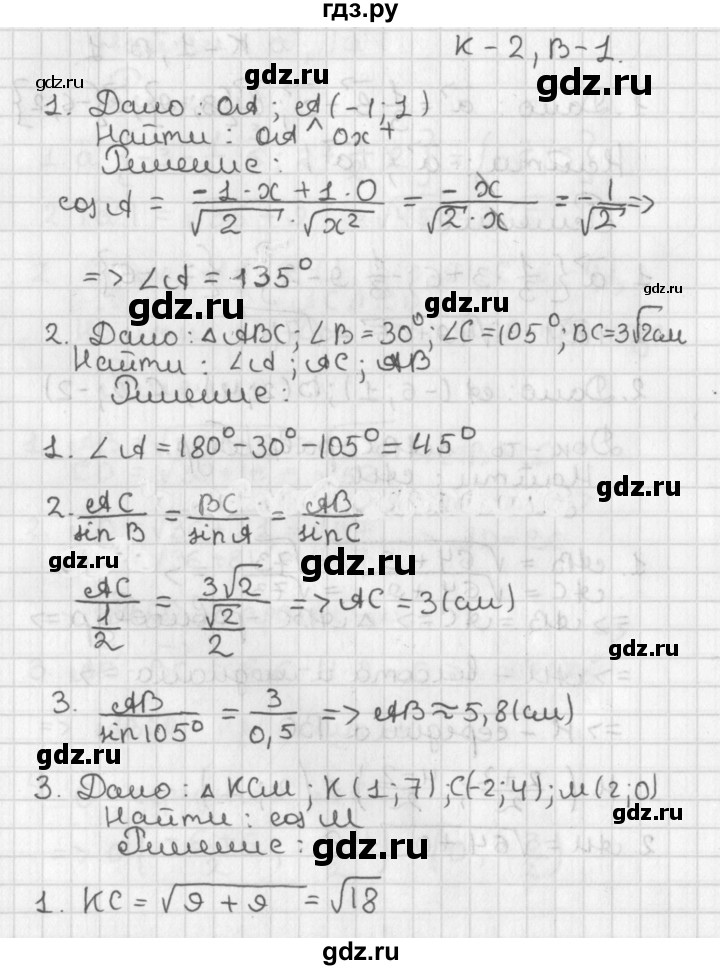 гдз.ру
К – 2, В – 1.
gdz.ru
gdz.ru
1. Дано: ОА; А(-1; 1)
Найти: ОА^ох+
Решение:
gdz.ru
cos A = (-1·x + 1·0)/(√2 · √x²) = -x/(√2·x) = -1/√2 =>
gdz.ru
=> ∠A = 135°
gdz.ru
gdz.ru
gdz.ru
2. Дано: △ABC; ∠B = 30°; ∠C = 105°; BC = 3√2 см
Найти: ∠A; AC; AB
Решение:
1. ∠A = 180° - 30° - 105° = 45°
gdz.ru
2. AC/sin B = BC/sin A = AB/sin C
gdz.ru
gdz.ru
AC/(1/2) = 3√2/(√2/2) => AC = 3 (см)
gdz.ru
3. AB/sin 105° = 3/0,5 => AB ≈ 5,8 (см)
gdz.ru
3. Дано: △KCM; K(1; 7); C(-2; 4); M(2; 0)
Найти: cos M
gdz.ru
Решение:
gdz.ru
1. KC = √9 + 9 = √18
gdz.ru